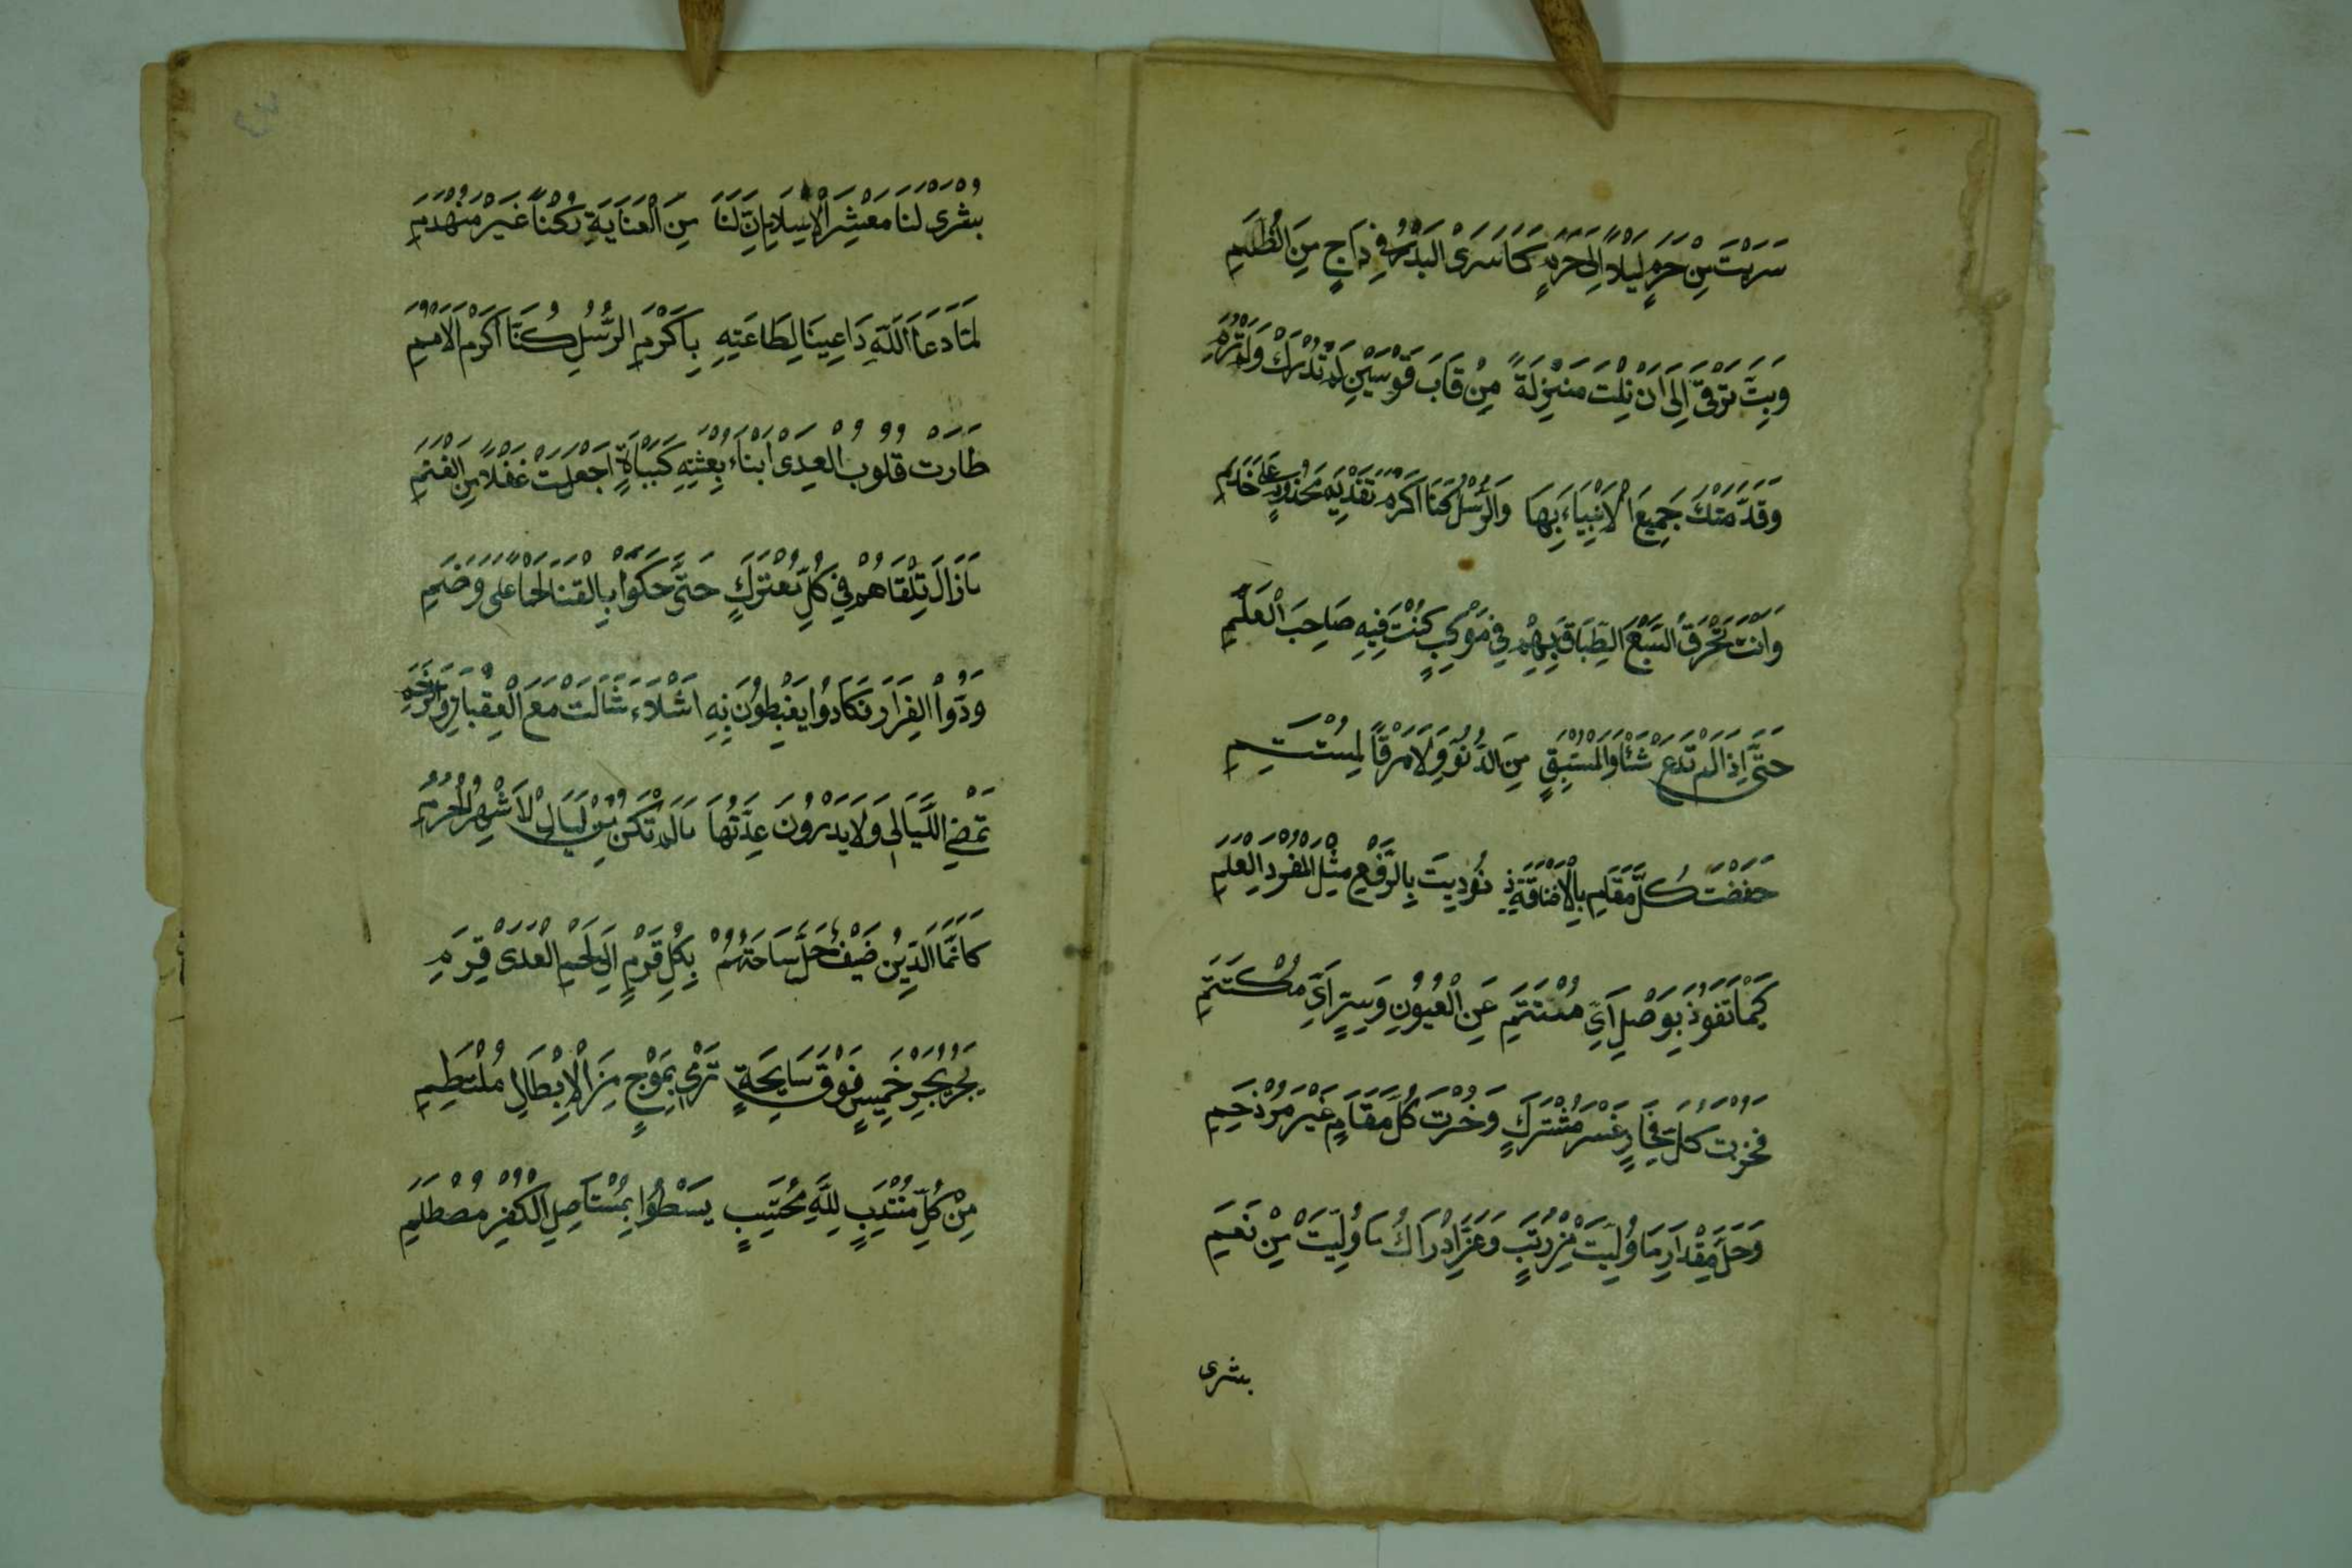 سَرَيْتَ مِنْ حَرَمٍ لَيْلاً اِلَى حَرَمٍ كَمَا سَرَىَ الْبَدْرُ فِي دَاجٍ مِنَ الظُّلَمِ
وَبِتَّ تَرْقَى اِلَى اَنْ نِلْتَ مَنْزِلَةً مِنْ قَابَ قَوْسَيْنِ لَمْ تُدْرَكْ وَلَمْ تُرَمِ
وَقَدَّمَتْكَ جَمِيعَ الْاَنْبِيَاءِ بِهَا وَالرُّسْلُ تَقْدِيمَ مَخْدُومٍ عَلَى خَدَمِ
وَاَنْتَ تَخْرَقُ السَّبْعَ الطِّبَاقَ بِهِمْ فِي مَوْكِبٍ كُنْتَ فِيهِ صَاحِبَ الْعَلَمِ
حَتَّى اِذَا لَمْ تَدَعْ شَأْوًا لِمُسْتَبِقٍ مِنَ الدُّنُوِّ وَلَا مَرْقًا لِمُسْتَنِمِ
خَفَضْتَ كُلَّ مَقَامٍ بِالْاِضَافَةِ اِذْ نُودِيتَ بِالرَّفْعِ مِثْلَ الْمُفْرَدِ الْعَلَمِ
كَيْمَا تَفُوزَ بِوَصْلٍ اَيِّ مُسْتَتِرٍ عَنِ الْعُيُونِ وَسِرٍّ اَيِّ مُكْتَتَمِ
فَحُزْتَ كُلَّ فِخَارٍ غَيْرَ مُشْتَرَكٍ وَحُزْتَ كُلَّ مَقَامٍ غَيْرَ مُزْدَحِمِ
وَجَلَّ مِقْدَارُ مَا وُلِّيتَ مِنْ رُتَبٍ وَعَزَّ اِدْرَاكُ مَا وُلِيتَ مِنْ نَعَمِ
بشرى
بُشْرَى لَنَا مَعْشَرَ الْاِسْلَامِ اِنَّ لَنَا مِنَ الْعِنَايَةِ رُكْنًا غَيْرَ مُنْهَدِمِ
لَمَّا دَعَا اللَّهُ دَاعِينَا لِطَاعَتِهِ بِاَكْرَمِ الرُّسُلِ كُنَّا اَكْرَمَ الْاُمَمِ
طَارَتْ قُلُوبُ الْعِدَى اَبْنَاءُ بِعْثَتِهِ كَنَبْأَةٍ اَجْفَلَتْ غُفْلاً مِنَ الْغَنَمِ
مَا زَالَ يَلْقَاهُمُ فِي كُلِّ مُعْتَرَكٍ حَتَّى حَكَوْا بِالْقَنَا لَحْمًا عَلَى وَضَمِ
وَدُّوا الْفِرَارَ فَكَادُوا يَغْبِطُونَ بِهِ اَشْلَاءَ شَالَتْ مَعَ الْعِقْبَانِ وَالرَّخَمِ
تَمْضِي اللَّيَالِي وَلَا يَدْرُونَ عِدَّتَهَا مَا لَمْ تَكُنْ مِنْ لَيَالِي الْاَشْهُرِ الْحُرُمِ
كَاَنَّمَا الدِّينُ ضَيْفٌ حَلَّ سَاحَتَهُمْ بِكُلِّ قَرْمٍ اِلَى لَحْمِ الْعِدَى قَرِمِ
يَجُرُّ بَحْرَ خَمِيسٍ فَوْقَ سَابِحَةٍ تَرْمِي بِمَوْجٍ مِنَ الْاَبْطَالِ مُلْتَطِمِ
مِنْ كُلِّ مُنْتَدِبٍ لِلَّهِ مُحْتَسِبٍ يَسْطُوا بِمُسْتَاصِلٍ الْكُفْرِ مُصْطَلِمِ